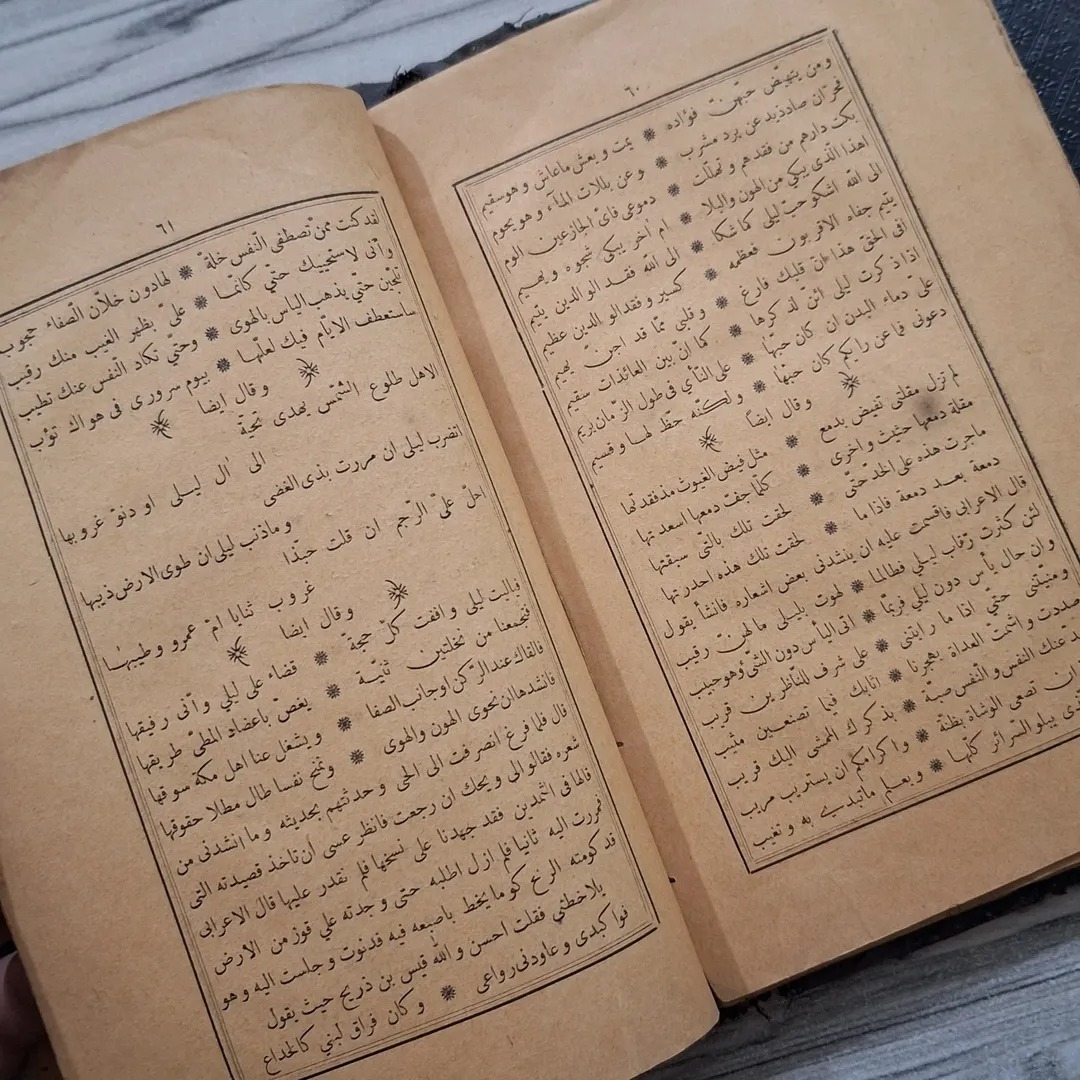 ٦٠
ومن يتهيض حبهن فؤاده ❋ يمت ويعش ماعاش وهو سقيم
فحران صاد ذيد عن برد مشرب ❋ وعن بللات المآء وهو يحوم
بكت دارهم من فقدهم وتهللت ❋ دموعى فاى الجازعين الوم
اهذا الذى يبكى من الهون والبلا ❋ ام اخر يبكى شجوه ويهيم
الى الله اشكو حب ليلى كما شكا ❋ الى الله فقد الوالدين يتيم
يتيم جفاه الاقربون فعظمه ❋ كسير وفقد الوالدين عظيم
افى الحق هذا ان قلبك فارغ ❋ وقلبى مما قد اجن يهيم
اذا ذكرت ليلى ائن لذكرها ❋ كما ان بين العائذات سقيم
على دماء البدن ان كان حبها ❋ على النأي فى طول الزمان يريم
دعونى فما عن رايكم كان حبها ❋ ولكنه حظ لها وقسيم
وقال ايضا
لم تزل مقلتى تفيض بدمع ❋ مثل فيض الغيوث مذ فقدتها
مقلة دمعها حثيث واخرى ❋ كلما جف دمعها اسعدتها
ماجرت هذه على الخد حتى ❋ لحقت تلك بالتى سبقتها
دمعة بعد دمعة فاذا ما ❋ لحقت تلك هذه احدرتها
قال الاعرابى فاقسمت عليه ان ينشدنى بعض اشعاره فانشأ يقول
لئن كثرت رقاب ليلى فطالما ❋ لهوت بليلى مالهن رقيب
وان حال يأس دون ليلى فربما ❋ اتى اليأس دون الشئ وهو حبيب
ومنيتنى حتى اذا ما رايتنى ❋ على شرف للناظرين قريب
صددت واشمت العداة بهجرنا ❋ اثابك فيما تصنعين مثيب
عنك النفس والنفس صبة ❋ بذكرك الممشى اليك قريب
ان تصعى الوشاة بظنة ❋ واكرامكم ان يستريب مريب
يبلو السرائر كلها ❋ ويعلم ماتبدى به وتغيب
٦١
لقد كنت ممن تصطفى النفس خلة ❋ لها دون خلان الصفاء حجوب
وانى لاستحييك حتى كانما ❋ على بظهر الغيب منك رقيب
تلجين حتى يذهب الياس بالهوى ❋ وحتى تكاد النفس عنك تطيب
ساستعطف الايام فيك لعلها ❋ بيوم سرورى فى هواك تؤب
وقال ايضا
الاهل طلوع الشمس يهدى تحية
الى ال ليلى او دنو غروبها
اتضرب ليلى ان مررت بذى الغضى
وماذنب ليلى ان طوى الارض ذيبها
احل على الرجم ان قلت حبذا
غروب ثنايا ام عمرو وطيبها
وقال ايضا
فياليت ليلى وافقت كل حجة ❋ قضاء على ليلى وانى رفيقها
فتجمعنا من نخلتين ثنية ❋ يغص باعضاد المطى طريقها
فالقاك عند الركن اوجانب الصفا ❋ ويشغل عنا اهل مكة سوقها
فانشدها ان نحوى الهون والهوى ❋ وتمنح نفسا طال مطلا حقوقها
قال فلما فرغ انصرفت الى الحى وحدثتهم بحديثه وما انشدنى من
شعره فقالو الى ويحك ان رجعت فانظر عسى ان تاخذ قصيدته التى
قالها فى الثمدين فقد جهدنا على نسخها فلم نقدر عليها قال الاعرابى
فمررت اليه ثانيا فلم ازل اطلبه حتى وجدته على قوز من الارض
قد كومته الريح كوما يخط باصبعه فيه فدنوت وجلست اليه وهو
يلاحظنى فقلت احسن والله قيس بن ذريح حيث يقول
فوا كبدى وعاودنى رواعى ❋ وكان فراق لبنى كالخداع